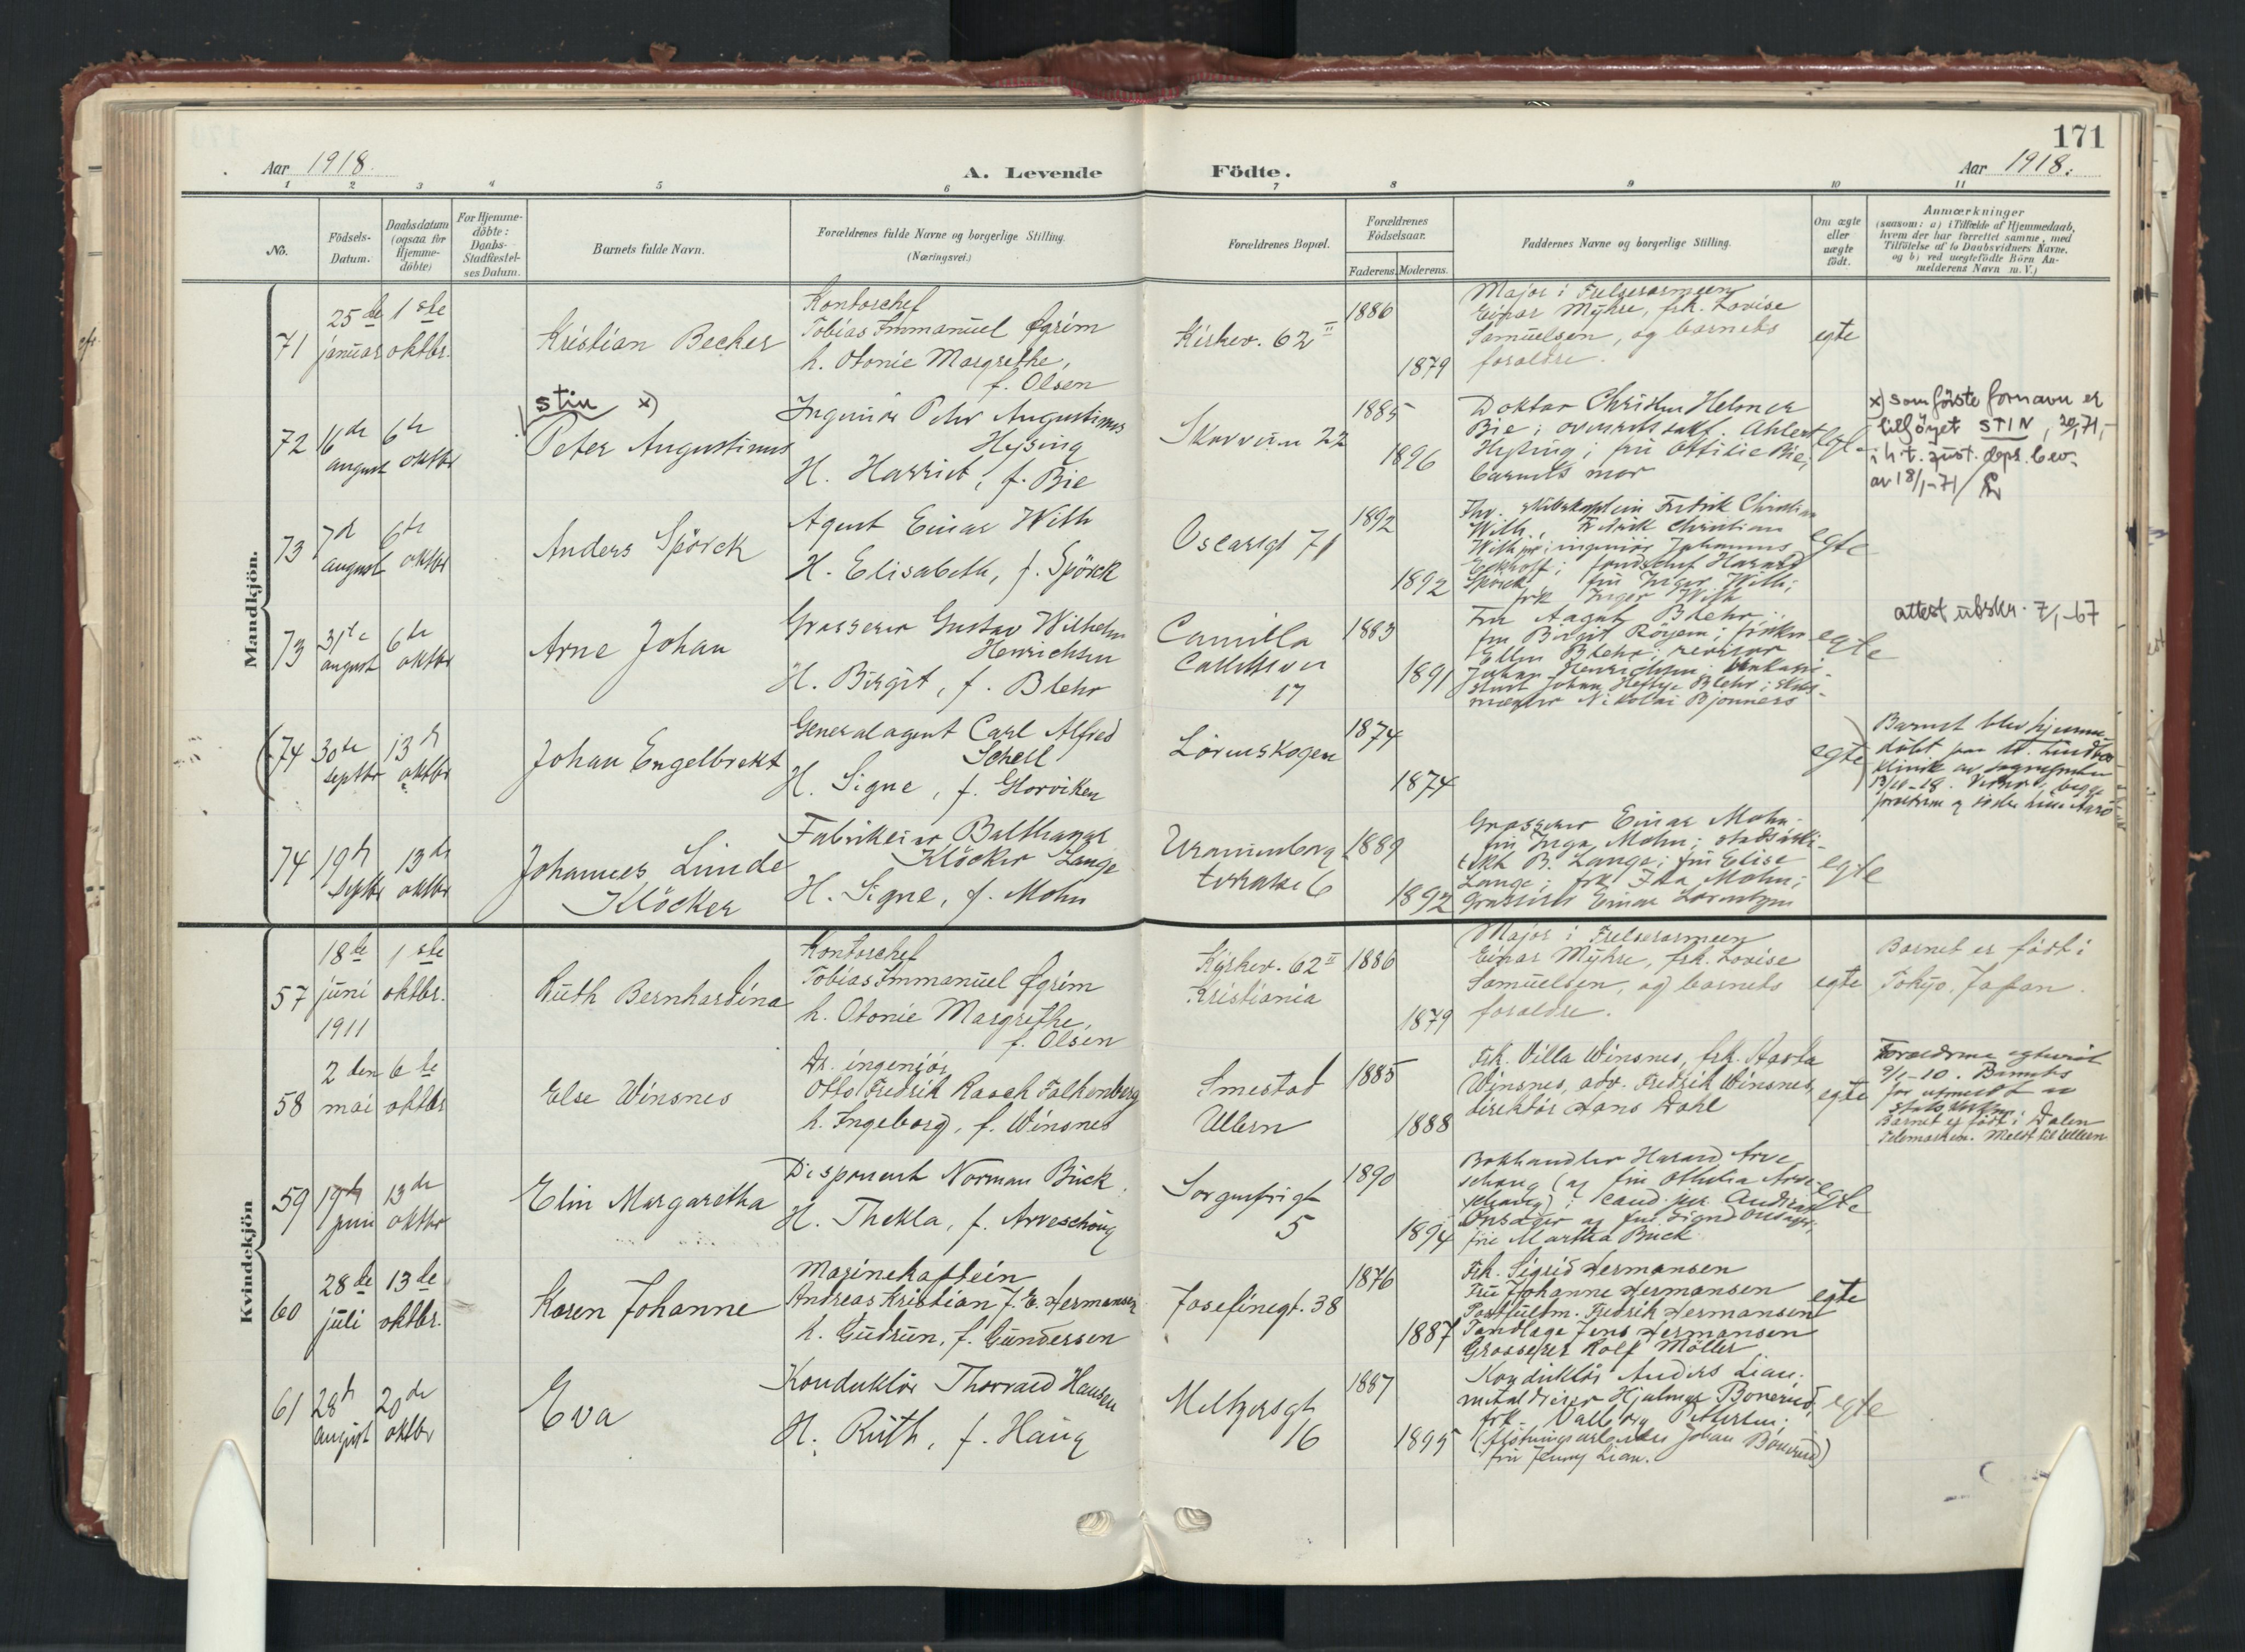 171
Aar 1918.
A. Levende Födte.
Aar 1918.
1 2 3 4 5 6 7 8 9 10 11
No.
Födsels-Datum.
Daabsdatum (ogsaa for Hjemme-döbte)
For Hjemme-döbte: Daabs-Stadfæstel-ses Datum.
Barnets fulde Navn.
Forældrenes fulde Navne og borgerlige Stilling.
(Næringsvei.)
Forældrenes Bopæl.
Forældrenes Födselsaar.
Faderens. Moderens.
Faddernes Navne og borgerlige Stilling.
Om ægte eller uægte födt.
Anmærkninger
(saasom: a) i Tilfælde af Hjemmedaab,
hvem der har forrettet samme, med
Tilföielse af to Daabsvidners Navne,
og b) ved uægtefödte Börn An-
melderens Navn m. V.)
Mandkjön.
71
25de januar
1ste oktbr.
Kristian Becker
Kontorchef
Tobias Immanuel Øgrim
h. Otonie Margrethe,
f. Olsen
Kirkev. 62 II
1886
1879
Major i Frelsesarmeen
Einar Myhre, frk. Lovise
Samuelsen, og barnets
foraldre.
egte
72
16de august
6te oktbr
stin x)
Peter Augustinus
Ingeniör Peter Augustinus
Hysing
H. Harriet, f. Bie
22
1885
1896
Doktor Christen Heltner
Bie; overrettssakf. Ahlert
Hysing; fru Ottilie Bie;
barnets mor
egte
x) som förste fornavn er
tilföyet STIN, 20/1 71,-
i h.t. just. dprs. bev.
av 18/1-71/
73
7de august
6te oktbr
Anders Spörck
Agent Einar With
H. Elisabeth, f. Spörck
Oscarsgt 71
1892
1892
Fhv. skibskaptein Fredrik Christian
With, Fredrik Christian
With jr; ingeniör Johannes
Eckhoff; Harald
Spörck; fru Inger With;
frk Inger With
egte
73
31te august
6te oktbr
Arne Johan
Grosserer Gustav Wilhelm
Henrichsen
H. Birgit, f. Blehr
Camilla
Collettsvei
17
1883
1891
Fru Aagot Blehr;
fru Birgit Röyem; fröken
Ellen Blehr; revisor
Johan Henrichsen;
Johan Heftye Blehr; skibs-
megler Nikolai Bjönness
egte
attest utskr. 7/1-67
74
30te septbr
13de oktbr
Johan Engelbrekt
Generalagent Carl Alfred
Schell
H. Signe, f. Horviken
Lörenskogen
1874
1874
egte
Barnet blev hjemme-
döbt paa dr.
klinik av sognepresten
13/10-18.
74
19de septbr
13de oktbr
Johannes Linde
Klöcker
Fabrikeier Balthazar
Klöcker Lange
H. Signe, f. Mohn
Uranienborg
terrasse 6
1889
1892
Grosserer Einar Mohn;
fru Inga Mohn; stadsarki-
tekt B. Lange; fru Elise
Lange; frk Ida Mohn;
grosserer Einar Lorentzen
egte
Kvindekjön
57
18de juni 1911
1ste oktbr.
Ruth Bernhardina
Kontorchef
Tobias Immanuel Øgrim
h. Otonie Margrethe,
f. Olsen
Kirkev. 62 II
Kristiania
1886
1879
Major i Frelsesarmeen
Einar Myhre, frk. Lovise
Samuelsen, og barnets
foraldre.
egte
Barnet er födt i
Tokyo, Japan.
58
2den mai
6te oktbr
Else Winsnes
Dr. ingeniör
Otto Fredrik Raach Falkenberg
h. Ingeborg, f. Winsnes
Smestad
Ullern
1885
1888
Frk. Villa Winsnes, frk. Aasta
Winsnes, adv. Fredrik Winsnes,
direktör Hans Dahl
egte
Foraeldrene egteviet
9/1-10. Barnets
far utmeldt av
statskirken.
Barnet er födt i Dalen
Telemarken. Meldt til Ullern
59
19de juni
13de oktbr
Elin Margaretha
Disponent Norman Buck
H. Thekla, f. Arveschoug
Sorgenfrigt
5
1890
1894
Bokhandler Harald Arve
schoug (og fru Othelia Arve-
schoug); cand. jur Andreas
Onsager og fru Signe Onsager;
fru Martha Buck
egte
60
28de juli
13de oktbr.
Karen Johanne
Marinekaptein
Andreas Kristian J. E. Hermansen
h. Gudrun, f. Gundersen
Josefinegt. 38
1876
1887
Frk. Sigrid Hermansen
Fru Johanne Hermansen
Postfuldm. Fredrik Hermansen
Tandlæge Jens Hermansen
Grosserer Rolf Möller
egte
61
28de august
20de oktbr
Eva
Konduktör Thorvald Hansen
H. Ruth, f. Haug
Meltzersgt
16
1887
1895
Konduktör Anders Lian;
metaldreier Hjalmar Bonerud,
frk. Valborg Pettersen;
(flötningsarbeider Johan Bonerud)
fru Jenny Lian.
egte